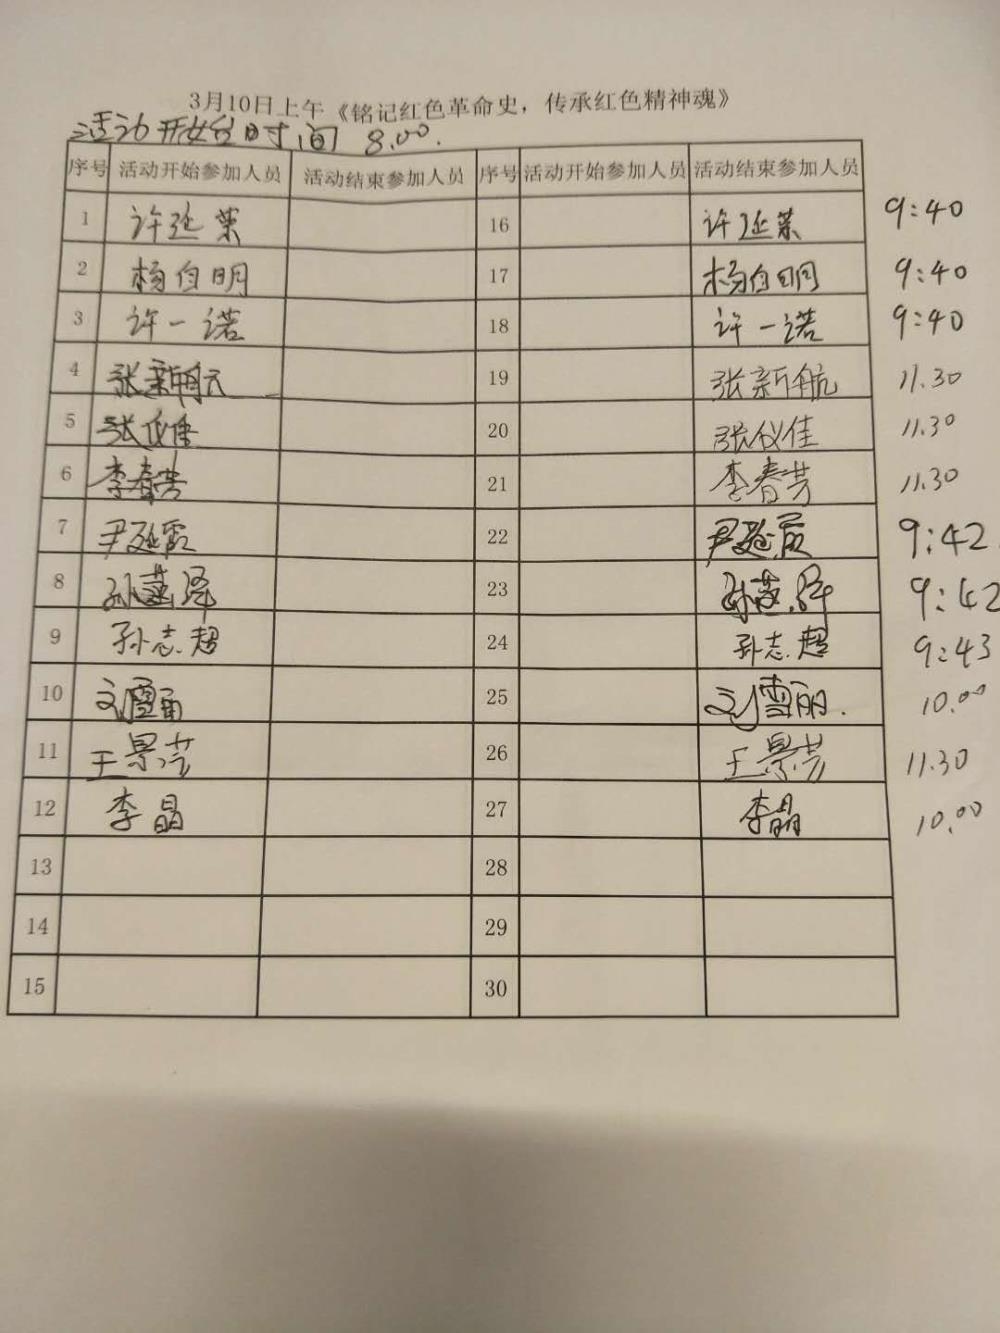 3月10日上午《铭记红色革命史，传承红色精神魂》
活动开始时间 8.00.
序号 活动开始参加人员 活动结束参加人员 序号 活动开始参加人员 活动结束参加人员
1 许延荣 16 许延荣 9:40
2 杨自明 17 杨自明 9:40
3 许一诺 18 许一诺 9:40
4 张新航 19 张新航 11.30
5 张仪佳 20 张仪佳 11.30
6 李春芳 21 李春芳 11.30
7 尹延霞 22 尹延霞 9:42
8 孙 泽 23 孙 泽 9:42
9 孙志超 24 孙志超 9:43
10 刘雪丽 25 刘雪丽. 10.00
11 王景芸 26 王景芸 11.30
12 李晶 27 李晶 10.00
13 28
14 29
15 30